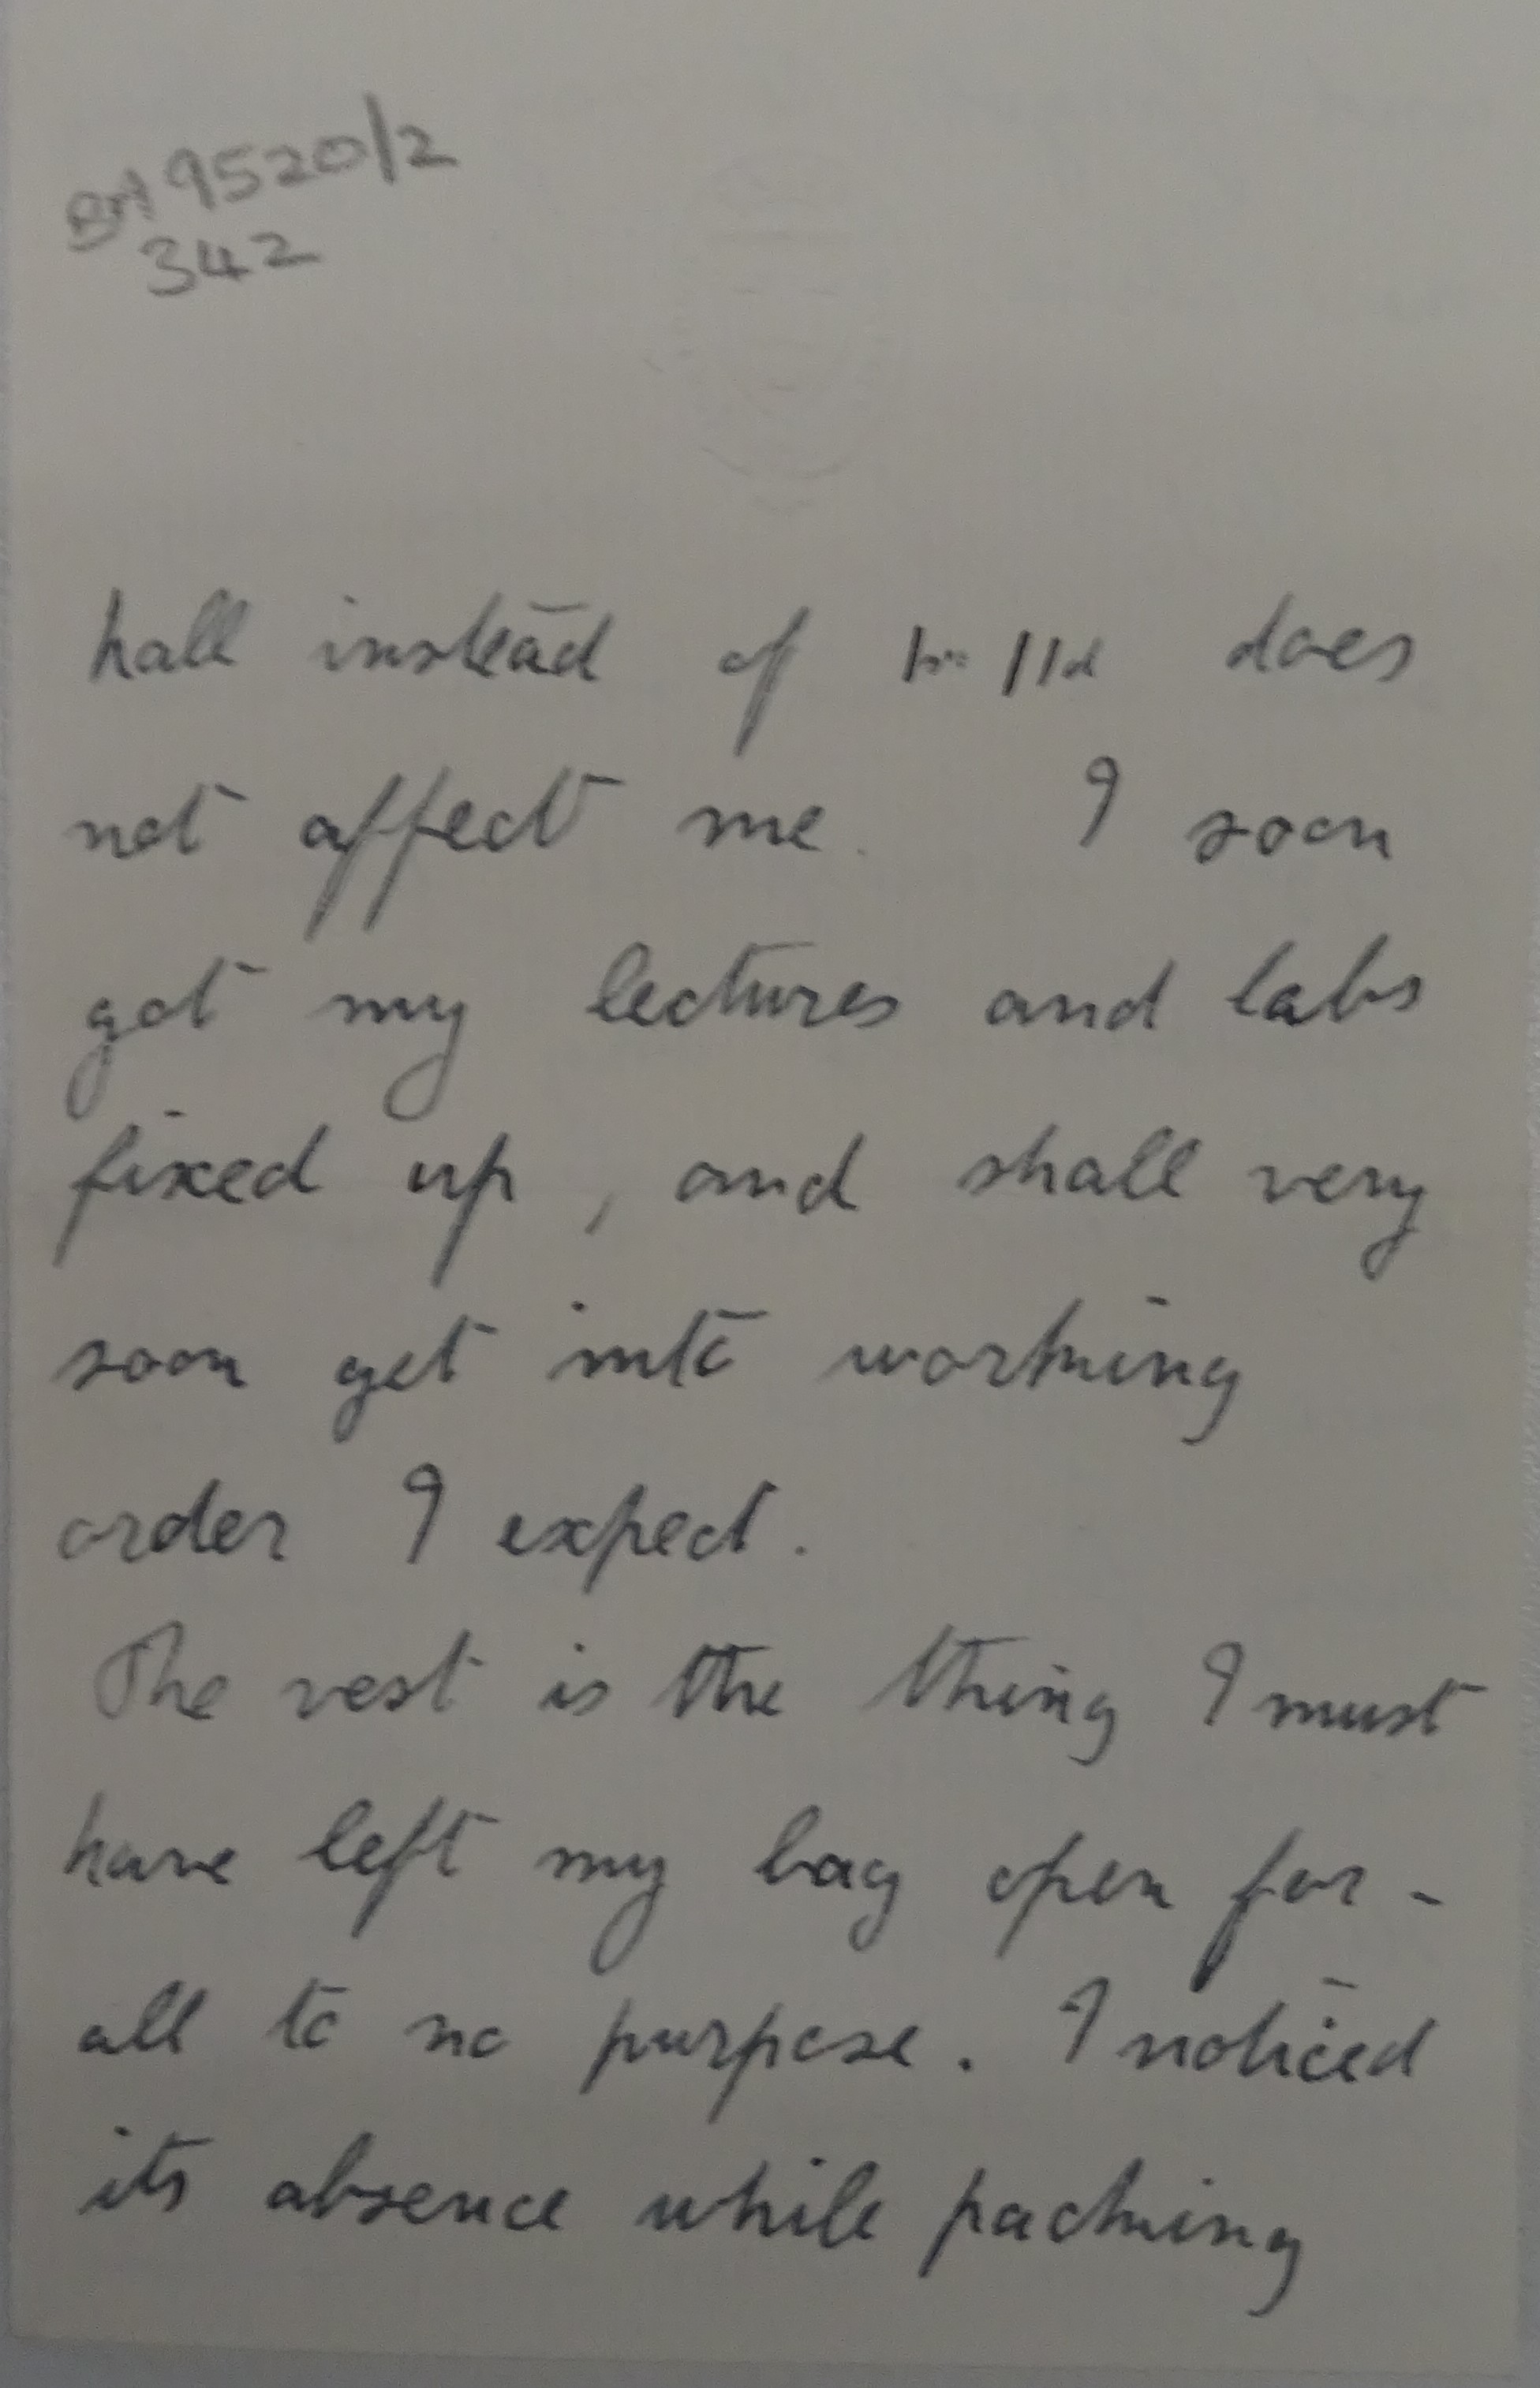 9520/2
342
hall instead of does
not affect me. I soon
got my lectures and labs
fixed up, and shall very
soon get into working
order I expect.
The vest is the thing I must
have left my bag open for -
all to no purpose. I noticed
its absence while packing